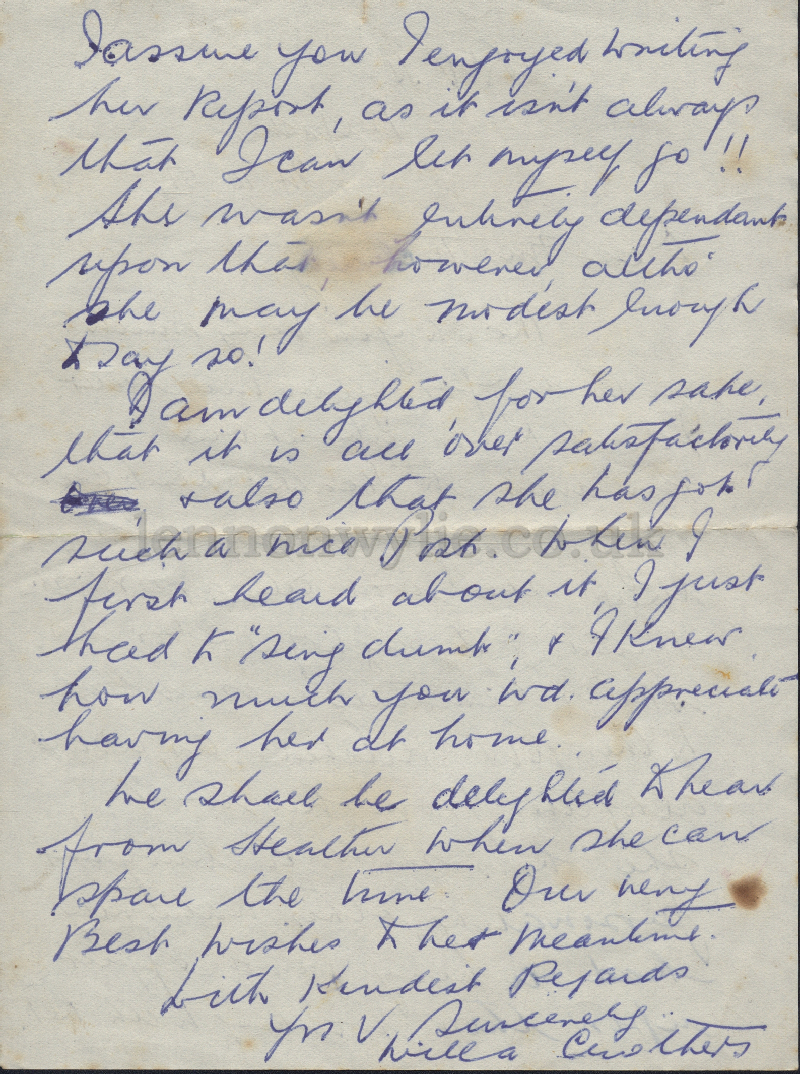 I assure you I enjoyed writing
her Report, as it isn't always
that I can let myself go!!
She wasn't entirely dependant
upon that, however, altho'
she may be modest enough
to say so!
I am delighted, for her sake,
that it is all over satisfactorily
& also that she has got
such a nice Post. When I
first heard about it, I just
had to "sing dumb", & I knew
how much you wd. appreciate
having her at home.
We shall be delighted to hear
from Heather when she can
spare the time. Our very
Best wishes to her meantime.
With Kindest Regards
Yrs V. Sincerely
Willa
lennonwylie.co.uk